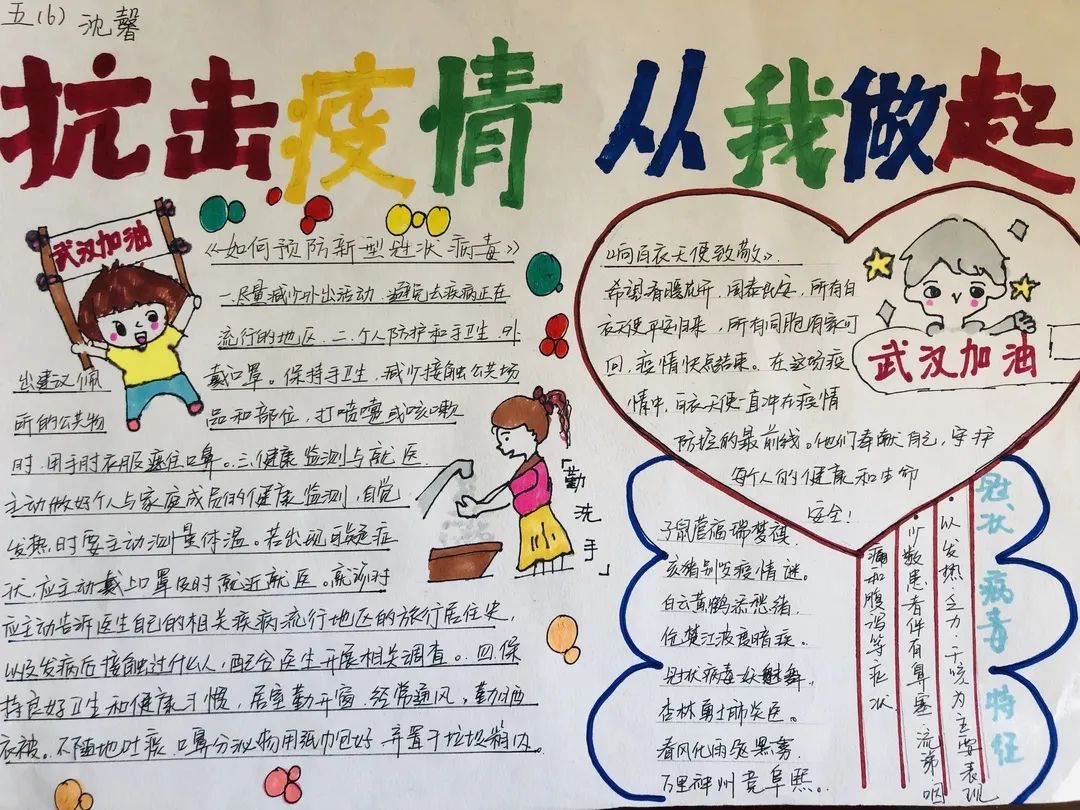 五(6) 沈馨
抗击疫情 从我做起
武汉加油
《如何预防新型冠状病毒》
一.尽量减少外出活动.避免去疾病正在
流行的地区.二.个人防护和手卫生.外
出建议佩戴口罩。保持手卫生.减少接触公共场
所的公共物品和部位,打喷嚏或咳嗽
时.用手肘衣服遮住口鼻。.三.健康监测与就医.
主动做好个人与家庭成员的健康监测,自觉
发热,时要主动测量体温。若出现可疑症
状,应主动戴上口罩及时就近就医。就诊时
应主动告诉医生自己的相关疾病流行地区的旅行居住史,
以及发病后接触过什么人,配合医生开展相关调查。.四.保
持良好卫生和健康习惯,居室勤开窗.经常通风.勤晒
衣被。不随地吐痰 口鼻分泌物用纸巾包好 弃置于垃圾箱内。
「勤洗手」
《向白衣天使致敬》.
希望春暖花开,国泰民安,所有白
衣天使平安归来,所有同胞有家可
回.疫情快点结束。在这场疫
情中,白衣天使一直冲在疫情
防控的最前线。他们奉献自己,守护
每个人的健康和生命
安全!
武汉加油
子鼠营福瑞梦祺.
亥猪别岁疫情谜。
白云黄鹤添愁绪.
伦.楚江波度暗疾。
冠状病毒妖魅舞.
杏林勇士肺炎医。
春风化雨驱黑雾.
万里神州竞阜熙。
冠状病毒特征
·以发热.乏力.干咳为主要表现
·少数患者伴有鼻塞.流涕.咽
痛和腹泻等症状